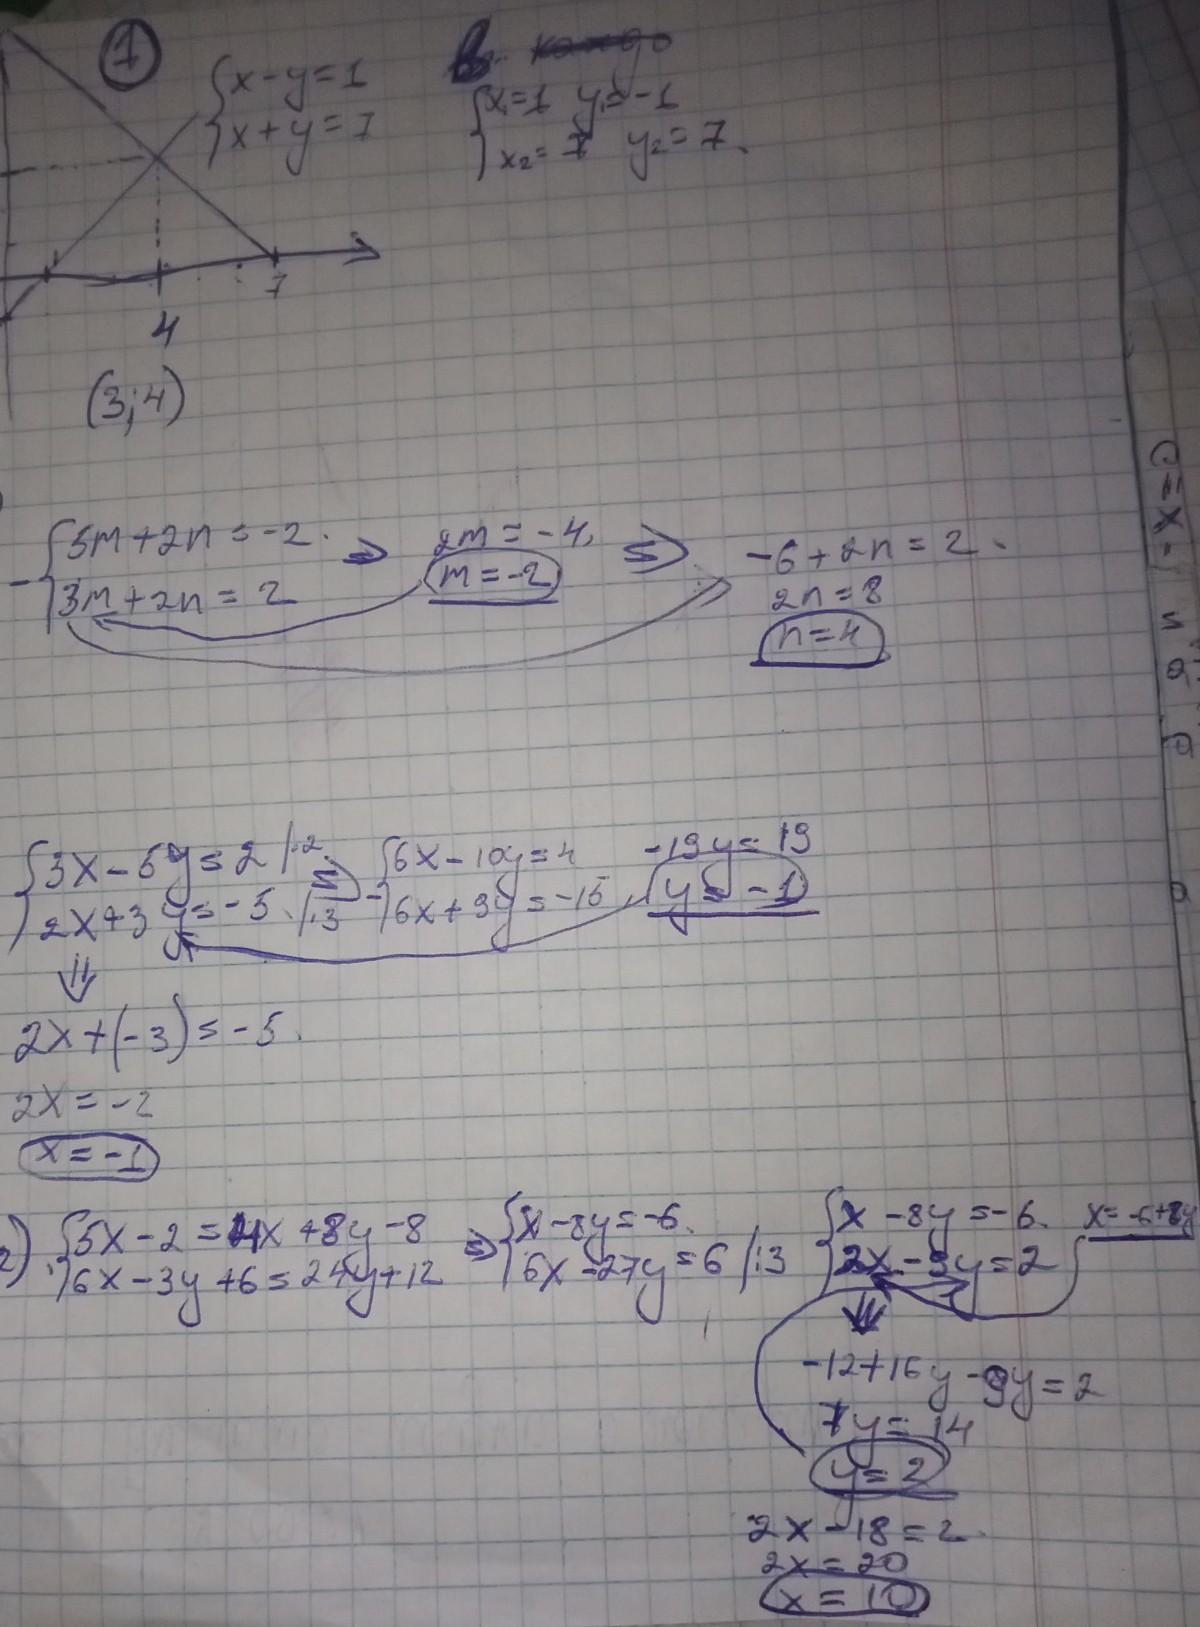 1
x-y=1
x+y=7
x₁=1 y₁=-1
x₂=7 y₂=7
7
4
(3;4)
5m+2n=-2.
3m+2n=2
2m=-4,
m=-2
-6+2n=2.
2n=8
n=4
3x-5y=2 |·2
2x+3y=-5. |·3
6x-10y=4
6x+9y=-15
-19y=19
y=-1
2x+(-3)=-5.
2x=-2
x=-1
2)
5x-2=4x+8y-8
6x-3y+6=24y+12
x-8y=-6.
6x-27y=6 |:3
x-8y=-6.
2x-9y=2
x=-6+8y
-12+16y-9y=2
7y=14
y=2
2x-18=2.
2x=20
x=10